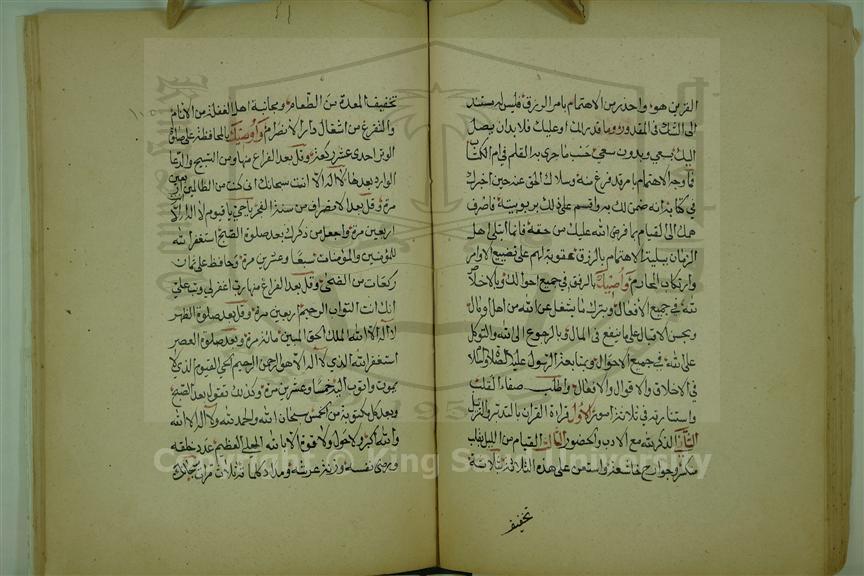 القرين هو واحذر من الاهتمام بامر الرزق فليس له مستند
الى الشك في المقدور وما قدر لك او عليك فلا بد ان يصل
اليك بسعي وبدون سعي حسب ما جرى به القلم في ام الكتاب
فما وجه الاهتمام بامر قد فرغ منه وسلاك الحق عنه حين اخبرك
في كتابه انه ضمن لك به واقسم على ذلك بربوبيته فاصرف
همك الى القيام بما فرض الله عليك من حقه فانما ابتلى اهل
الزمان ببلية الاهتمام بالرزق عقوبة لهم على تضييع الاوامر
وارتكاب المحارم واوصيك بالرفق في جميع احوالك وبالاخلاص
لله في جميع الافعال وبترك ما يشغل عن الله من اهل ومال
وبحسن الاقبال على ما ينفع في المال وبالرجوع الى الله والتوكل
على الله في جميع الاحوال وبمتابعة الرسول عليه الصلاة والسلام
في الاخلاق والاقوال والافعال واطلب صفاء القلب
واستنارته في ثلاثة امور الاول قراءة القران بالتدبر والترتيل
الثاني الذكر لله مع الادب والحضور الثالث القيام من الليل بقلب
منكسر وجوارح خاشعة واستعن على هذه الثلاثة بثلاثة
تخفيف
تخفيف المعدة من الطعام ومجانبة اهل الغفلة من الانام
والتفرغ من اشغال دار الانصرام واوصيك بالمحافظة على صلوة
الوتر احدى عشر ركعة وقل بعد الفراغ منها من التسبيح والدعا
الوارد بعدها لا اله الا انت سبحانك اني كنت من الظالمين اربعين
مرة وقل بعد الانصراف من سنة الفجر يا حي يا قيوم لا اله الا انت
اربعين مرة واجعل من ذكرك بعد صلوة الصبح استغفر الله
للمؤمنين والمؤمنات سبعا وعشرين مرة وحافظ على ثمان
ركعات من الضحى وقل بعد الفراغ منها رب اغفر لي وتب علي
انك انت التواب الرحيم اربعين مرة وقل بعد صلوة الظهر
لا اله الا الله الملك الحق المبين مائة مرة وبعد صلوة العصر
استغفر الله الذي لا اله الا هو الرحمن الرحيم الحي القيوم الذي لا
يموت واتوب اليه خمسا وعشرين مرة وكذلك تقول بعد الصبح
وبعد كل مكتوبة من الخمس سبحان الله والحمد لله ولا اله الا الله
والله اكبر ولا حول ولا قوة الا بالله العلي العظيم عدد خلقه
ورضى نفسه وزنة عرشه ومداد كلماته ثلاث مرات
Copyright © King Saud University
1957